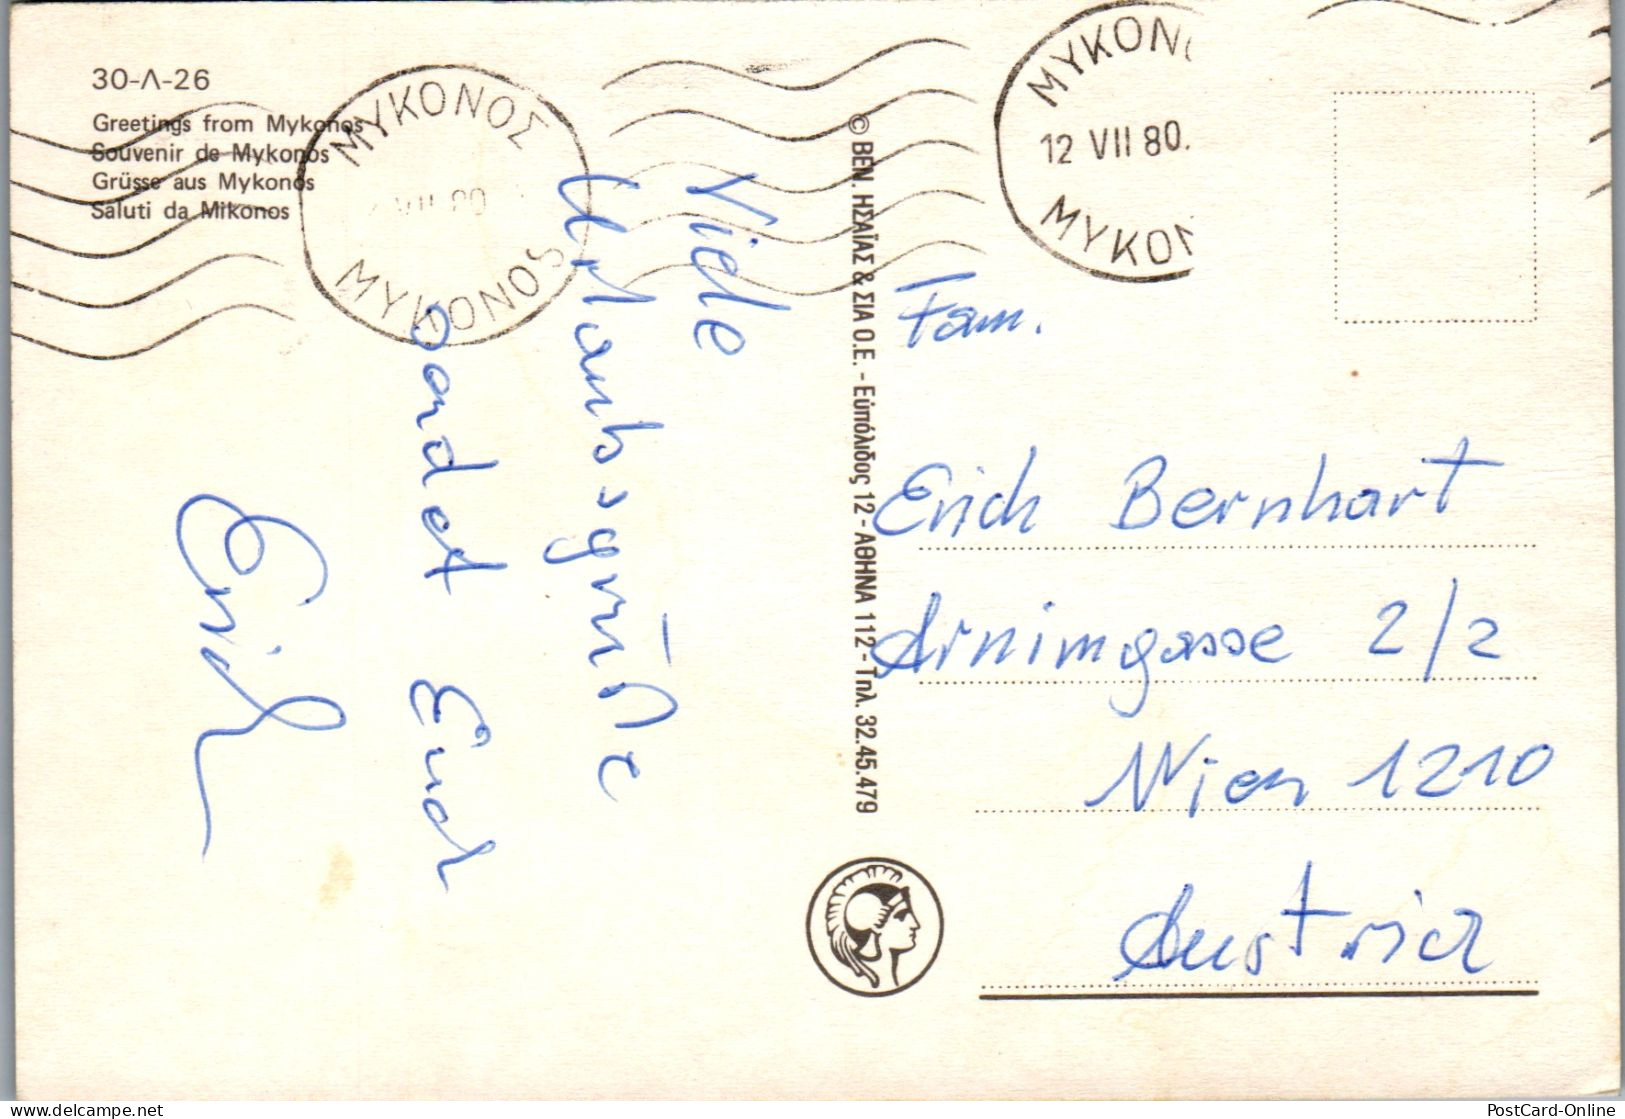 30-Λ-26
Greetings from Mykonos
Souvenir de Mykonos
Grüsse aus Mykonos
Saluti da Mikonos
ΜΥΚΟΝΟΣ
VII 80
MYKONOS
ΜΥΚΟΝ
12 VII 80.
MYKON
Viele
Urlaubsgrüße
sendet Euch
Erich
© ΒΕΝ. ΗΣΑΪΑΣ & ΣΙΑ Ο.Ε. - Εὐπόλιδος 12 - ΑΘΗΝΑ 112 - Τηλ. 32.45.479
Fam.
Erich Bernhart
Arnimgasse 2/2
Wien 1210
Austria
PostCard-Collector.com